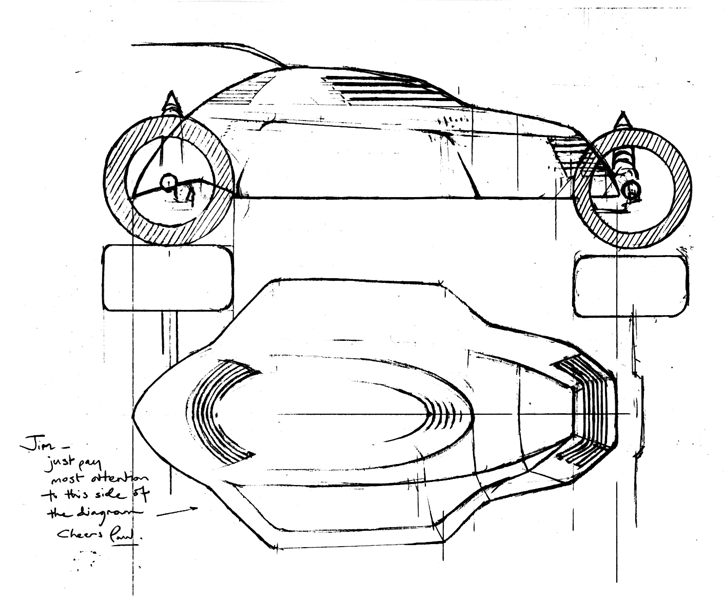 Jim -
just pay
most attention
to this side of
the diagram
Cheers Paul.